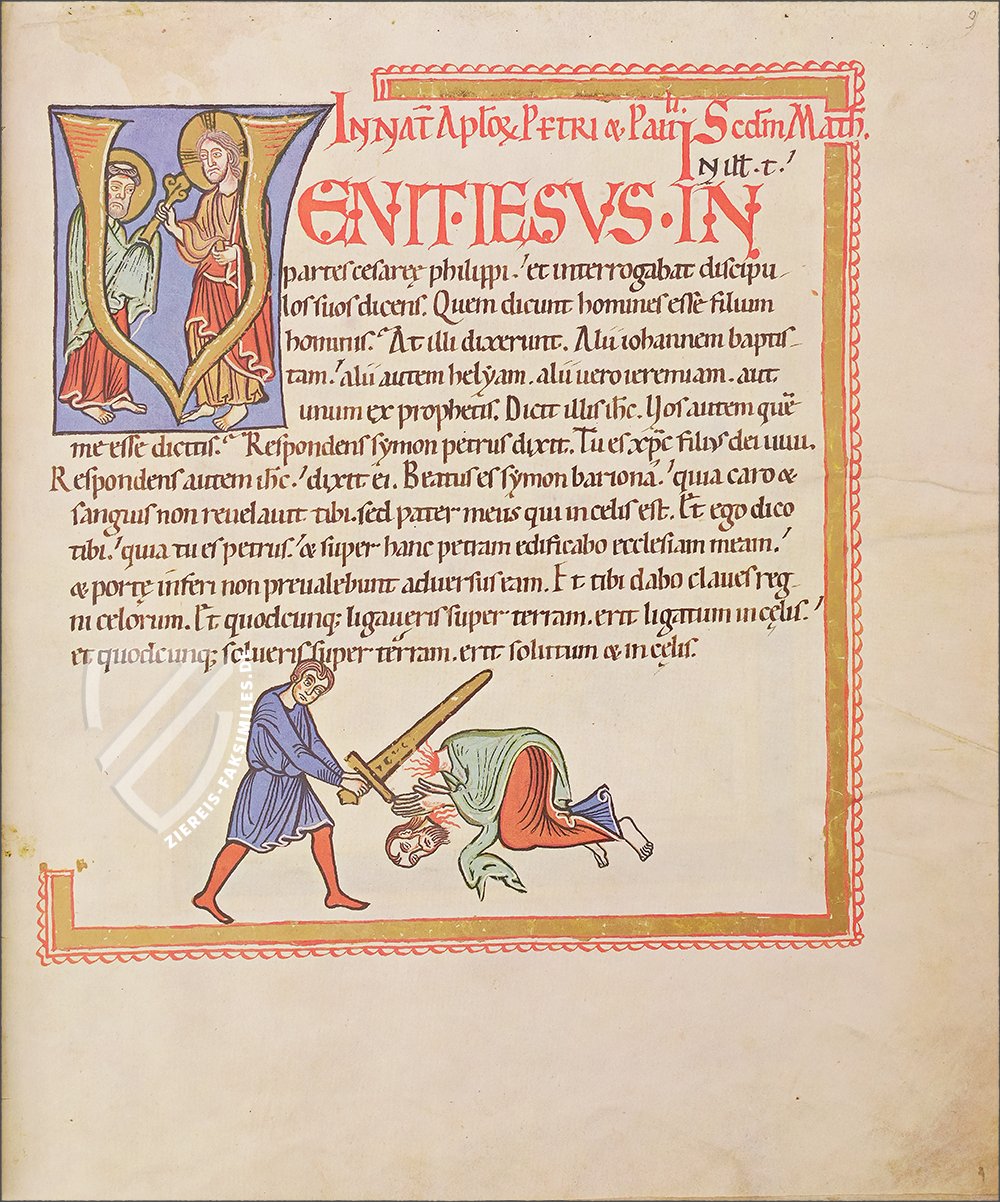 IN NAT̄ APŁOꝜ PETRI & Pauli. Scdm Math.
IN illt. t.
VENIT·IESVS·IN
partes cesaręę philippi. et interrogabat discipu
los suos dicens. Quem dicunt homines esse filium
hominis. At illi dixerunt. Alii iohannem baptis
tam. alii autem helẏam. alii uero ieremiam. aut
unum ex prophetis. Dicit illis ihc. Uos autem quē
me esse dicitis. Respondens sẏmon petrus dixit. Tu es xp̄c filius dei uiui.
Respondens autem ihc. dixit ei. Beatus es sẏmon bariona. quia caro &
sanguis non reuelauit tibi. sed pater meus qui in celis est. Et ego dico
tibi. quia tu es petrus. & super hanc petram edificabo ecclesiam meam.
& portę inferi non preualebunt aduersus eam. Et tibi dabo claues reg
ni celorum. Et quodcunq; ligaueris super terram. erit ligatum in cęlis.
et quodcunq; solueris super terram. erit solutum & in cęlis.
ZIEREIS-FAKSIMILES.DE
9